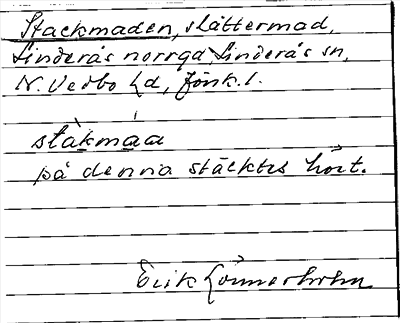 Stackmaden, slåttermad,
Linderås norrga, Linderås sn,
N. Vedbo hd, Jönk. l.
stàkmáa
på denna stäcktes höet.
Erik Lönnerholm